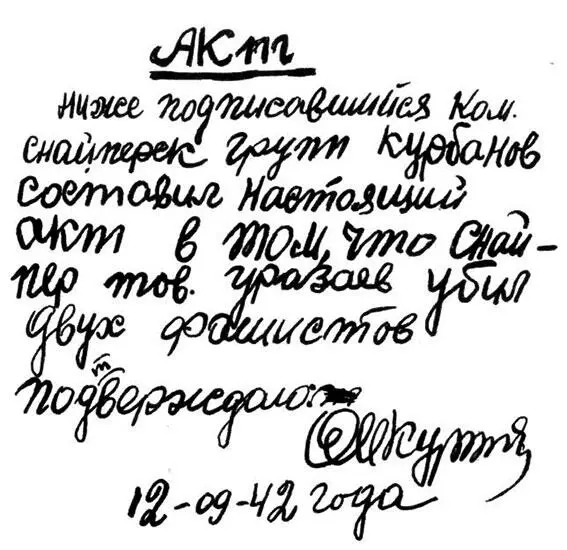 Акт
Ниже подписавшийся Ком.
снайперск групп Курбанов
составил настоящий
акт в том, что снай-
пер тов. Уразаев убил
двух фашистов
подтверждаю
12-09-42 года